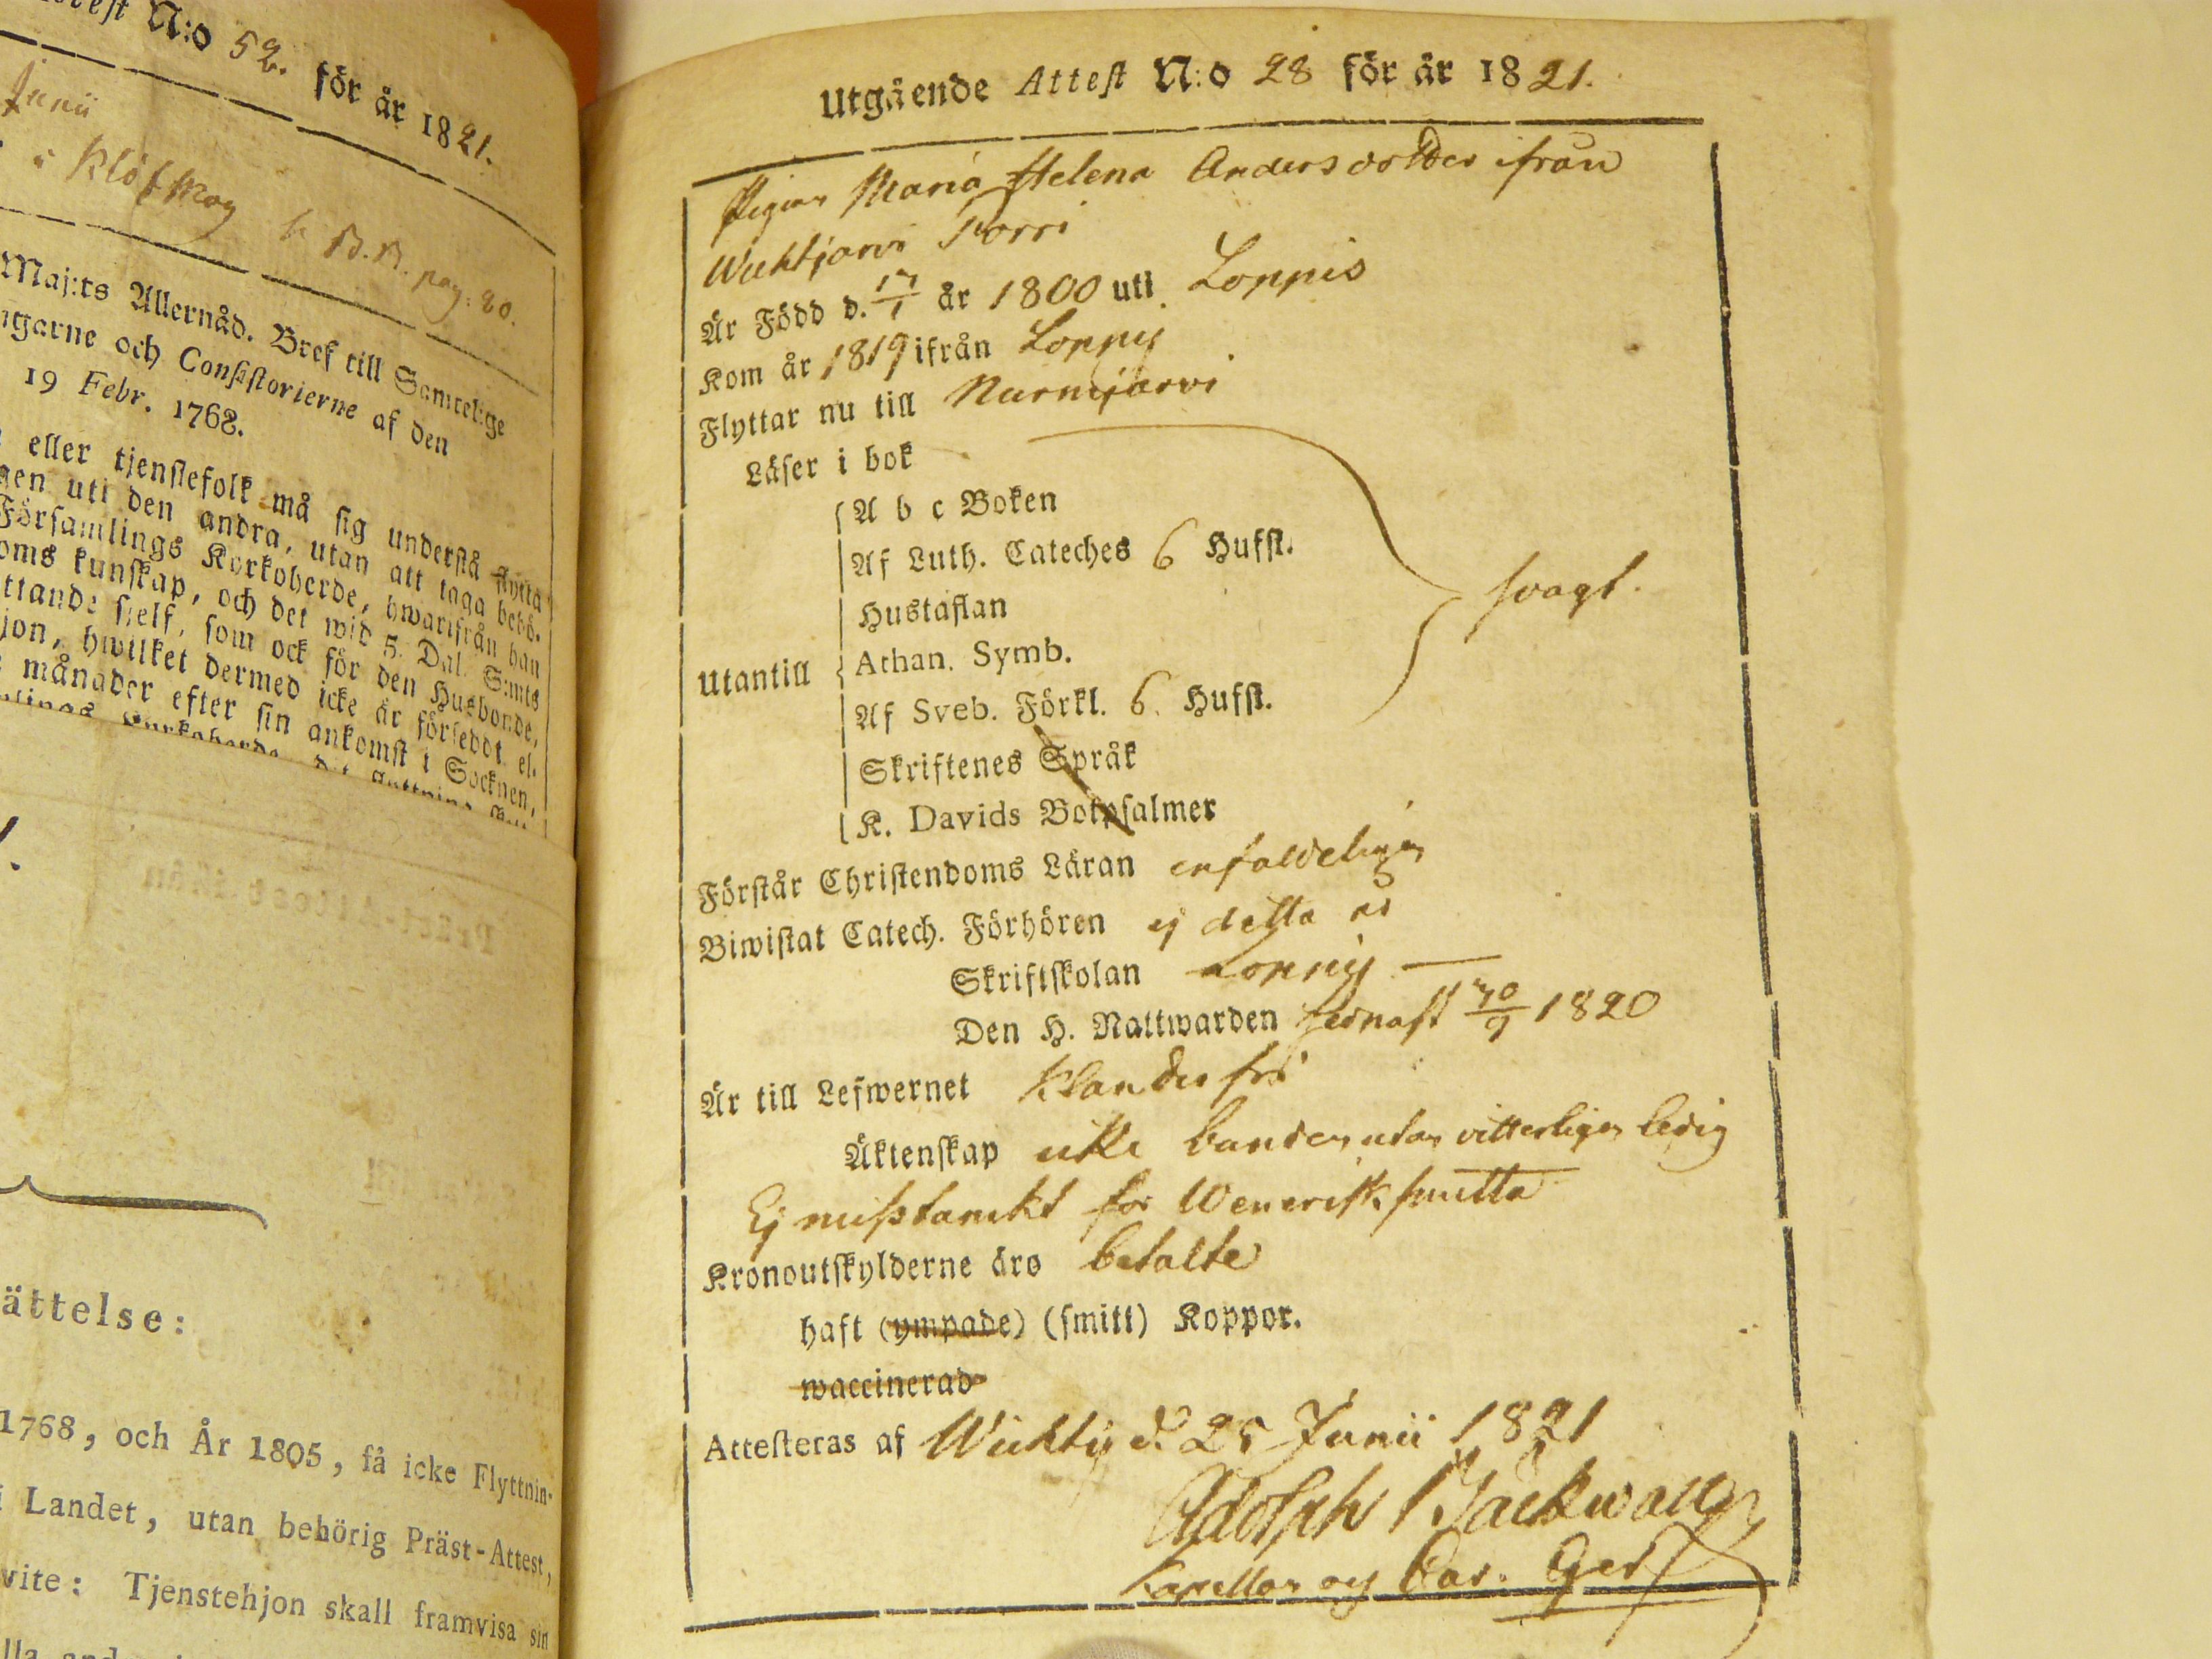 Attest N:o 52. för år 1821.
Junii
i Klöfskog h B.B. pag: 20.
Maj:ts Allernåd. Bref till Samtelige
ngarne och Consistorierne af den
19 Febr. 1762.
eller tjenstefolk må sig understå flytta
gen uti den andra, utan att taga behö-
Församlings Kyrkoherde, hwarifrån han
oms kunskap, och det wid 5. Dal. S:mts
ttande sjelf, som ock för den Husbonde,
jon, hwilket dermed icke är försedd, el-
månader efter sin ankomst i Socknen,
ättelse:
1768, och År 1805, få icke Flyttnin-
i Landet, utan behörig Präst-Attest,
vite: Tjenstehjon skall framvisa sin
Utgående Attest N:o 28 för år 1821.
Pigan Maria Helena Andersdotter ifrån
Wichtjärvi Porri
Är Född d. 17/1 år 1800 uti Loppis
Kom år 1819 ifrån Loppis
Flyttar nu till Nurmijärvi
Läser i bok
A b c Boken
Af Luth. Cateches 6 Hufst.
Hustaflan
svagt.
Utantill
Athan. Symb.
Af Sveb. Förkl. 6. Hufst.
Skriftenes Språk
K. Davids Botpsalmer
Förstår Christendoms Läran enfaldeligen
Biwistat Catech. Förhören ej detta år
Skriftskolan Loppis —
Den H. Nattwarden sednast 30/9 1820
Är till Lefwernet Klanderfri
Äktenskap icke bunden utan vitterligen ledig
Ej misstänkt för Wenerisk smitta
Kronoutskylderne äro betalte
haft (ympade) (smitt) Koppor.
waccinerad
Attesteras af Wichtis d. 25 Junii 1821
Adolph
Kapellan och